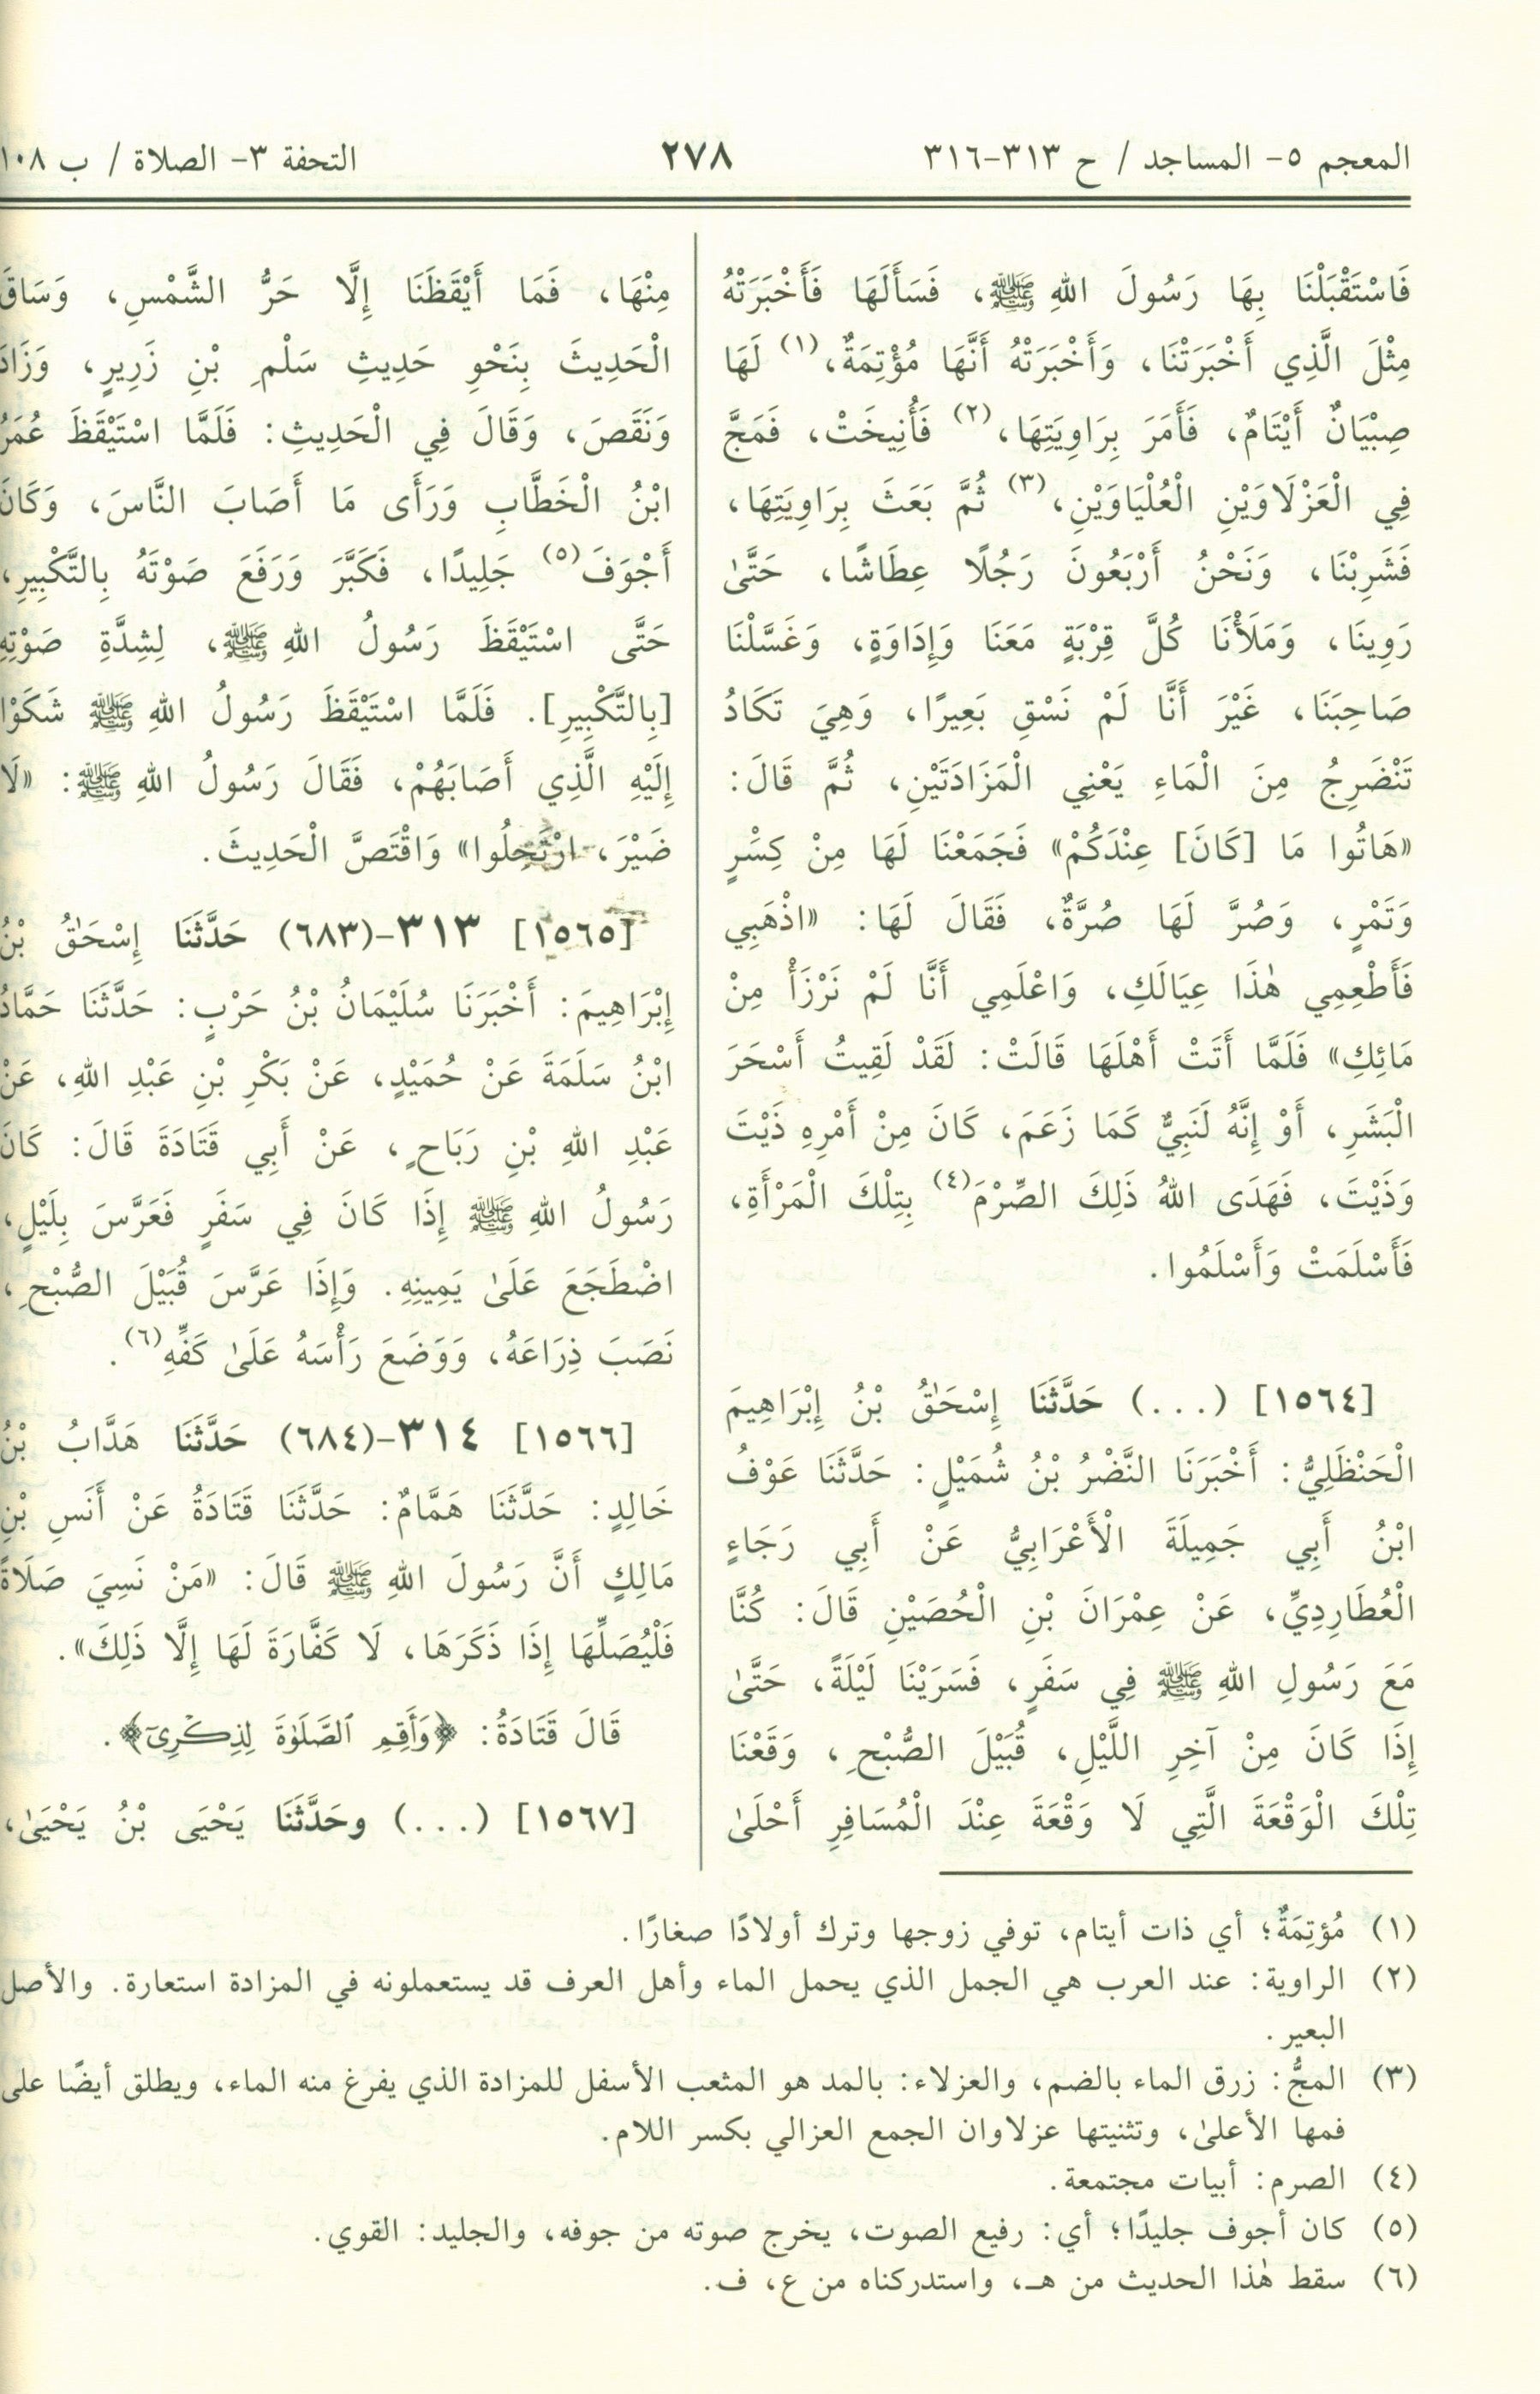 المعجم ٥- المساجد / ح ٣١٣-٣١٦
٢٧٨
التحفة ٣- الصلاة / ب ١٠٨
فَاسْتَقْبَلْنَا بِهَا رَسُولَ اللهِ ﷺ، فَسَأَلَهَا فَأَخْبَرَتْهُ
مِثْلَ الَّذِي أَخْبَرَتْنَا، وَأَخْبَرَتْهُ أَنَّهَا مُؤْتِمَةٌ،(١) لَهَا
صِبْيَانٌ أَيْتَامٌ، فَأَمَرَ بِرَاوِيَتِهَا،(٢) فَأُنِيخَتْ، فَمَجَّ
فِي الْعَزْلَاوَيْنِ الْعُلْيَاوَيْنِ،(٣) ثُمَّ بَعَثَ بِرَاوِيَتِهَا،
فَشَرِبْنَا، وَنَحْنُ أَرْبَعُونَ رَجُلًا عِطَاشًا، حَتَّىٰ
رَوِينَا، وَمَلَأْنَا كُلَّ قِرْبَةٍ مَعَنَا وَإِدَاوَةٍ، وَغَسَّلْنَا
صَاحِبَنَا، غَيْرَ أَنَّا لَمْ نَسْقِ بَعِيرًا، وَهِيَ تَكَادُ
تَنْضَرِجُ مِنَ الْمَاءِ يَعْنِي الْمَزَادَتَيْنِ، ثُمَّ قَالَ:
«هَاتُوا مَا [كَانَ] عِنْدَكُمْ» فَجَمَعْنَا لَهَا مِنْ كِسَرٍ
وَتَمْرٍ، وَصُرَّ لَهَا صُرَّةٌ، فَقَالَ لَهَا: «اذْهَبِي
فَأَطْعِمِي هٰذَا عِيَالَكِ، وَاعْلَمِي أَنَّا لَمْ نَرْزَأْ مِنْ
مَائِكِ» فَلَمَّا أَتَتْ أَهْلَهَا قَالَتْ: لَقَدْ لَقِيتُ أَسْحَرَ
الْبَشَرِ، أَوْ إِنَّهُ لَنَبِيٌّ كَمَا زَعَمَ، كَانَ مِنْ أَمْرِهِ ذَيْتَ
وَذَيْتَ، فَهَدَى اللهُ ذَلِكَ الصِّرْمَ(٤) بِتِلْكَ الْمَرْأَةِ،
فَأَسْلَمَتْ وَأَسْلَمُوا.
[١٥٦٤] (...) حَدَّثَنَا إِسْحَٰقُ بْنُ إِبْرَاهِيمَ
الْحَنْظَلِيُّ: أَخْبَرَنَا النَّضْرُ بْنُ شُمَيْلٍ: حَدَّثَنَا عَوْفُ
ابْنُ أَبِي جَمِيلَةَ الْأَعْرَابِيُّ عَنْ أَبِي رَجَاءٍ
الْعُطَارِدِيِّ، عَنْ عِمْرَانَ بْنِ الْحُصَيْنِ قَالَ: كُنَّا
مَعَ رَسُولِ اللهِ ﷺ فِي سَفَرٍ، فَسَرَيْنَا لَيْلَةً، حَتَّىٰ
إِذَا كَانَ مِنْ آخِرِ اللَّيْلِ، قُبَيْلَ الصُّبْحِ، وَقَعْنَا
تِلْكَ الْوَقْعَةَ الَّتِي لَا وَقْعَةَ عِنْدَ الْمُسَافِرِ أَحْلَىٰ
مِنْهَا، فَمَا أَيْقَظَنَا إِلَّا حَرُّ الشَّمْسِ، وَسَاقَ
الْحَدِيثَ بِنَحْوِ حَدِيثِ سَلْمِ بْنِ زَرِيرٍ، وَزَادَ
وَنَقَصَ، وَقَالَ فِي الْحَدِيثِ: فَلَمَّا اسْتَيْقَظَ عُمَرُ
ابْنُ الْخَطَّابِ وَرَأَى مَا أَصَابَ النَّاسَ، وَكَانَ
أَجْوَفَ(٥) جَلِيدًا، فَكَبَّرَ وَرَفَعَ صَوْتَهُ بِالتَّكْبِيرِ،
حَتَّى اسْتَيْقَظَ رَسُولُ اللهِ ﷺ، لِشِدَّةِ صَوْتِهِ
[بِالتَّكْبِيرِ]. فَلَمَّا اسْتَيْقَظَ رَسُولُ اللهِ ﷺ شَكَوْا
إِلَيْهِ الَّذِي أَصَابَهُمْ، فَقَالَ رَسُولُ اللهِ ﷺ: «لَا
ضَيْرَ، ارْتَحِلُوا» وَاقْتَصَّ الْحَدِيثَ.
[١٥٦٥] ٣١٣-(٦٨٣) حَدَّثَنَا إِسْحَٰقُ بْنُ
إِبْرَاهِيمَ: أَخْبَرَنَا سُلَيْمَانُ بْنُ حَرْبٍ: حَدَّثَنَا حَمَّادُ
ابْنُ سَلَمَةَ عَنْ حُمَيْدٍ، عَنْ بَكْرِ بْنِ عَبْدِ اللهِ، عَنْ
عَبْدِ اللهِ بْنِ رَبَاحٍ، عَنْ أَبِي قَتَادَةَ قَالَ: كَانَ
رَسُولُ اللهِ ﷺ إِذَا كَانَ فِي سَفَرٍ فَعَرَّسَ بِلَيْلٍ،
اضْطَجَعَ عَلَىٰ يَمِينِهِ. وَإِذَا عَرَّسَ قُبَيْلَ الصُّبْحِ،
نَصَبَ ذِرَاعَهُ، وَوَضَعَ رَأْسَهُ عَلَىٰ كَفِّهِ(٦).
[١٥٦٦] ٣١٤-(٦٨٤) حَدَّثَنَا هَدَّابُ بْنُ
خَالِدٍ: حَدَّثَنَا هَمَّامٌ: حَدَّثَنَا قَتَادَةُ عَنْ أَنَسِ بْنِ
مَالِكٍ أَنَّ رَسُولَ اللهِ ﷺ قَالَ: «مَنْ نَسِيَ صَلَاةً
فَلْيُصَلِّهَا إِذَا ذَكَرَهَا، لَا كَفَّارَةَ لَهَا إِلَّا ذَلِكَ».
قَالَ قَتَادَةُ: ﴿وَأَقِمِ ٱلصَّلَوٰةَ لِذِكْرِىٓ﴾.
[١٥٦٧] (...) وحَدَّثَنَا يَحْيَى بْنُ يَحْيَىٰ،
(١) مُؤتِمَةٌ؛ أي ذات أيتام، توفي زوجها وترك أولادًا صغارًا.
(٢) الراوية: عند العرب هي الجمل الذي يحمل الماء وأهل العرف قد يستعملونه في المزادة استعارة. والأصل
البعير.
(٣) المجُّ: زرق الماء بالضم، والعزلاء: بالمد هو المثعب الأسفل للمزادة الذي يفرغ منه الماء، ويطلق أيضًا على
فمها الأعلىٰ، وتثنيتها عزلاوان الجمع العزالي بكسر اللام.
(٤) الصرم: أبيات مجتمعة.
(٥) كان أجوف جليدًا؛ أي: رفيع الصوت، يخرج صوته من جوفه، والجليد: القوي.
(٦) سقط هٰذا الحديث من هـ، واستدركناه من ع، ف.